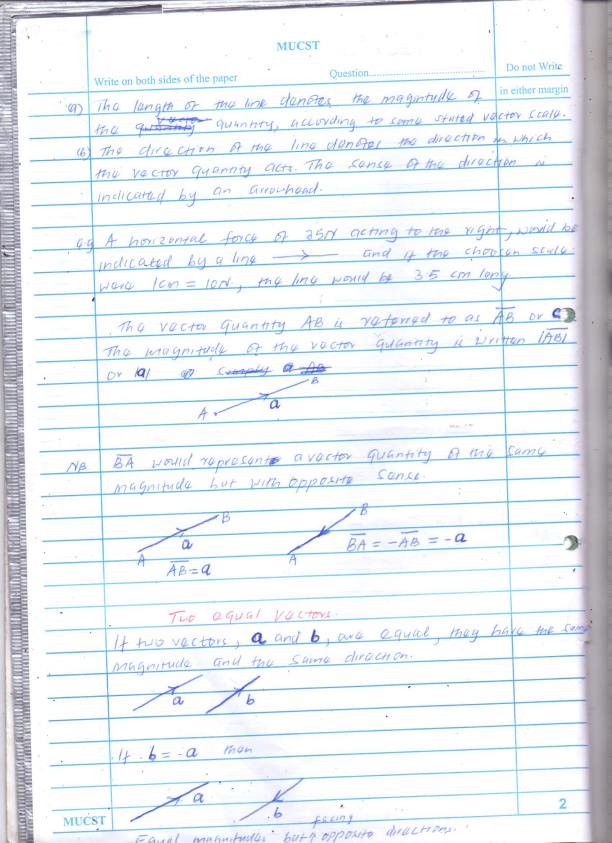 MUCST
Write on both sides of the paper Question.................... Do not Write
in either margin
(a) The length of the line denotes the magnitude of
the vector quantity, according to some stated vector scale.
(b) The direction of the line denotes the direction in which
the vector quantity acts. The sense of the direction is
indicated by an arrowhead.
e.g A horizontal force of 35N acting to the right, would be
indicated by a line and if the choosen scale
were 1cm = 10N, the line would be 3.5 cm long
The vector quantity AB is referred to as A̅B̅ or
The magnitude of the vector quantity is written |A̅B̅|
or |a|
B
A a
NB B̅A̅ would represent a vector quantity of the same
magnitude but with opposite sense.
B B
a B̅A̅ = -A̅B̅ = -a
A A
A̅B̅ = a
Two equal vectors.
If two vectors, a and b, are equal, they have the same
magnitude and the same direction.
a b
If b = -a then
a
b
MUCST 2
facing
Equal magnitudes but opposite directions.